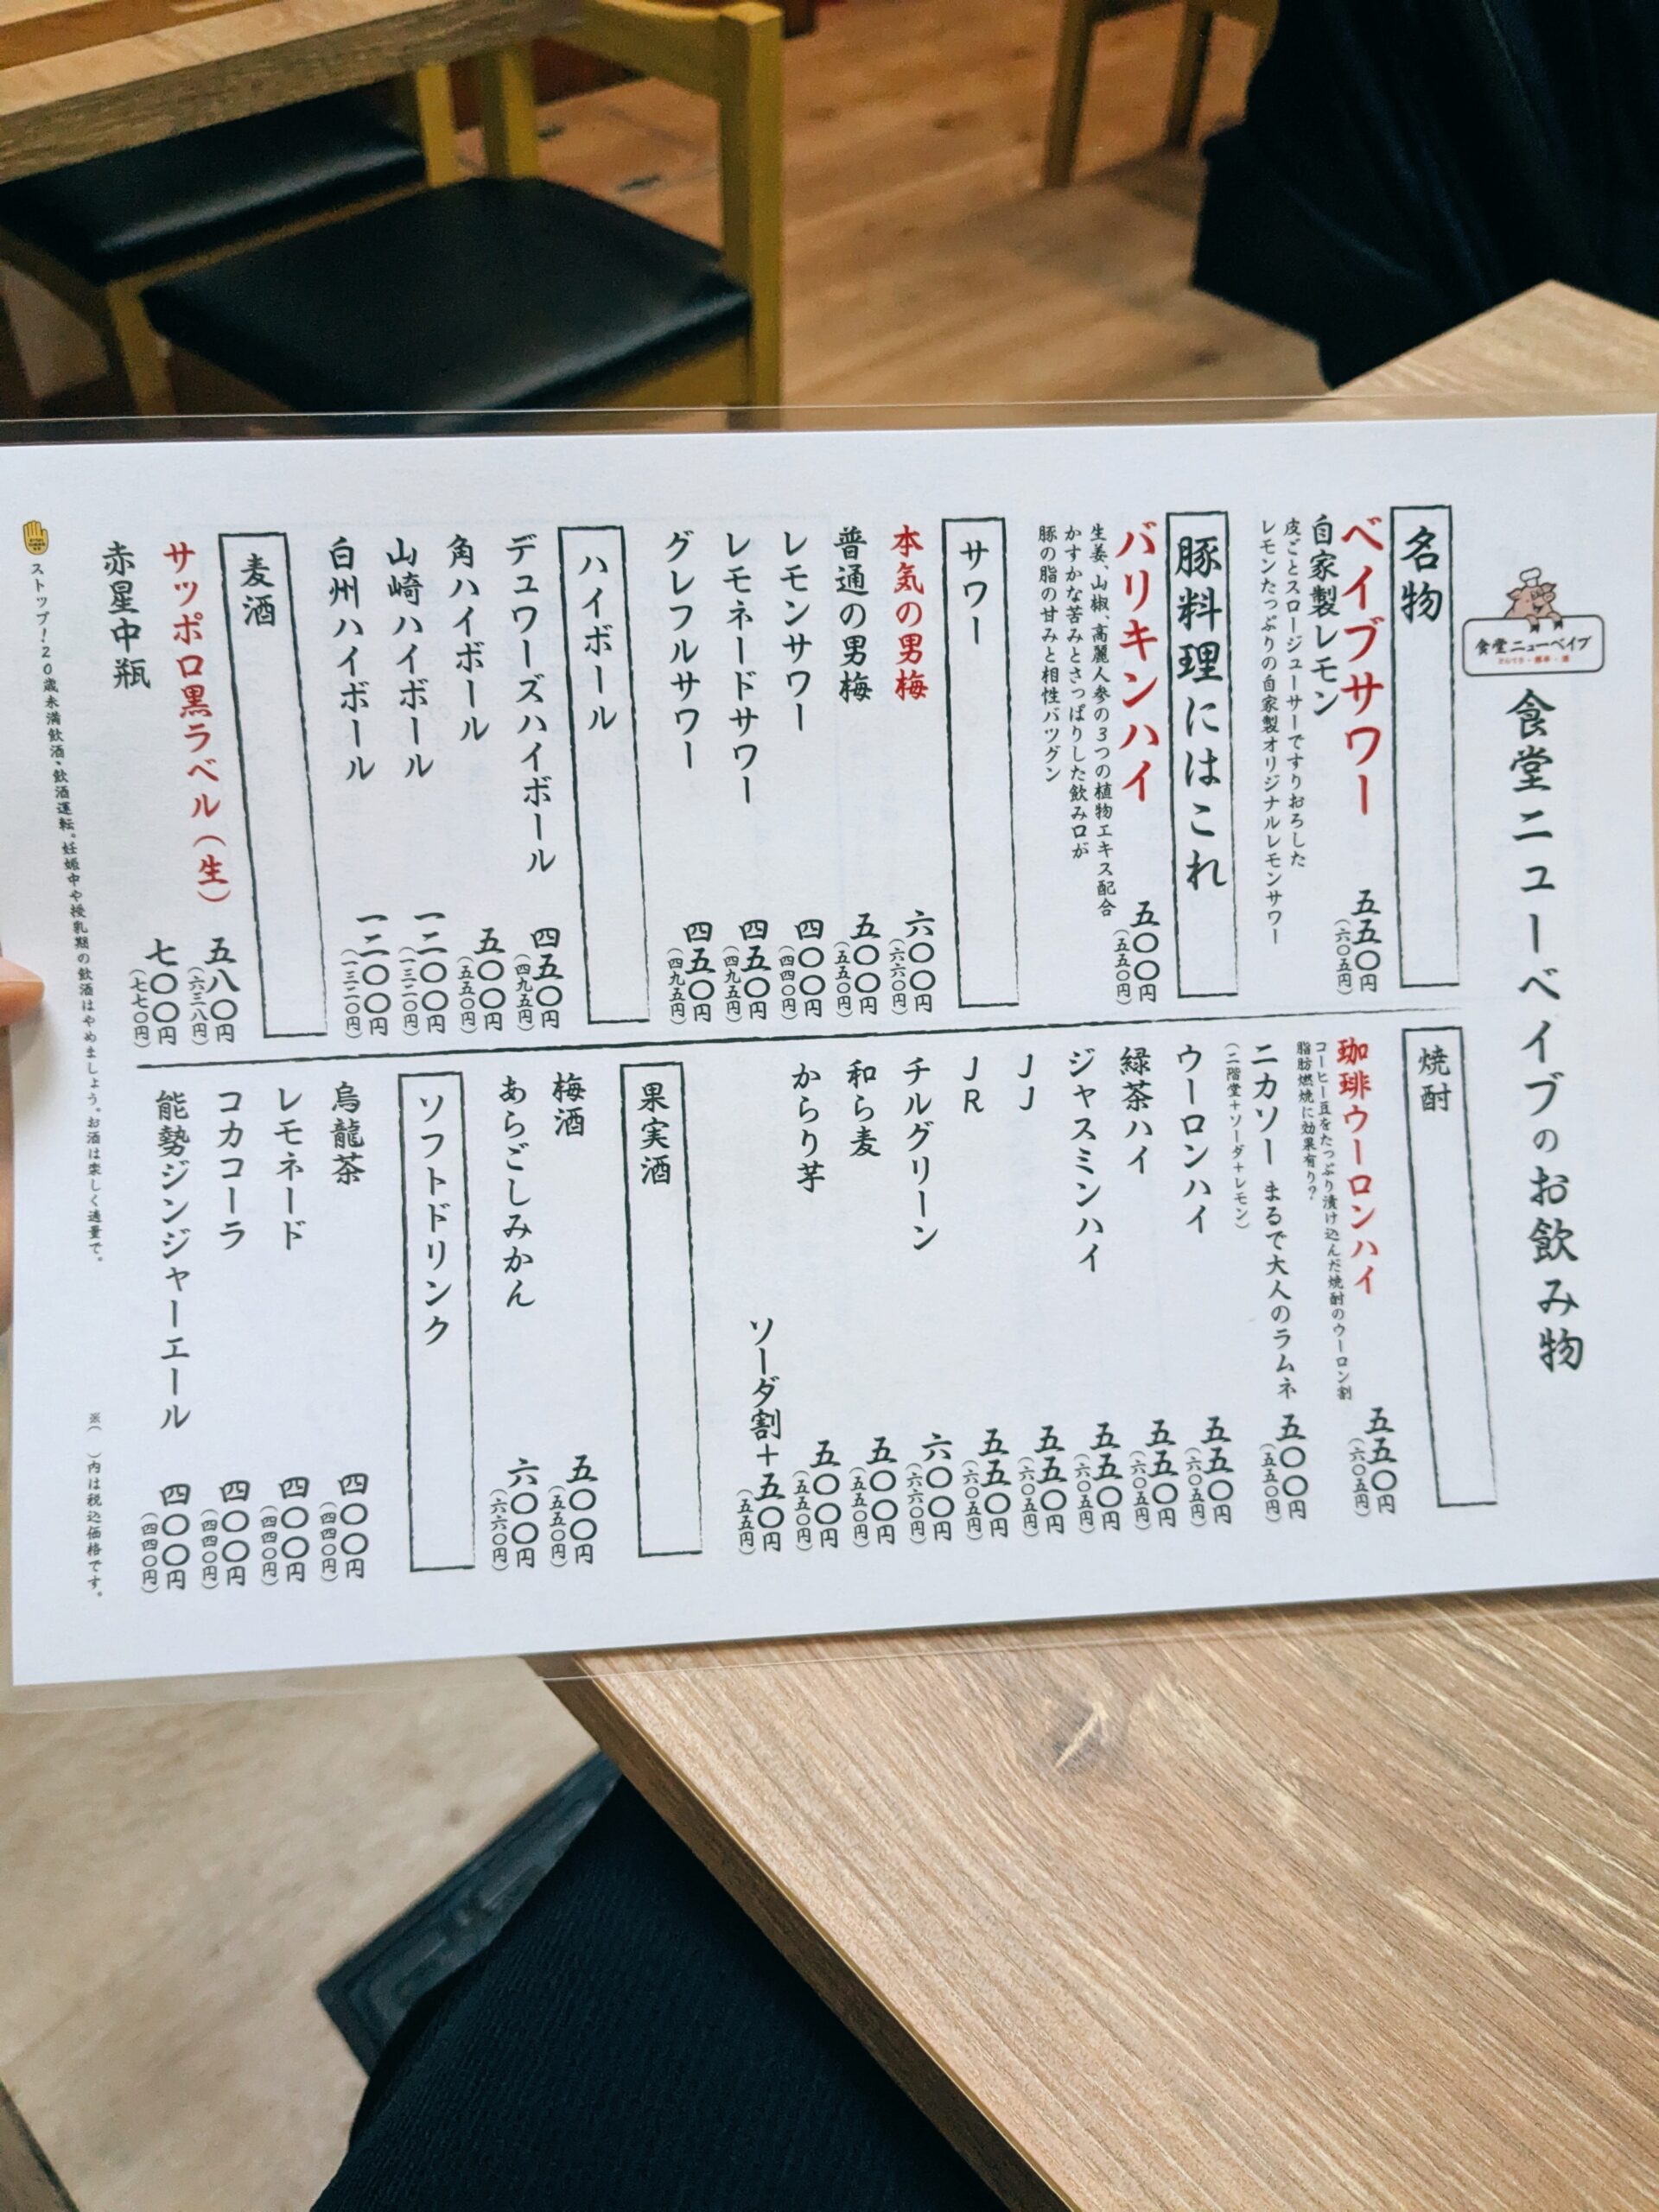 食堂ニューベイブ
食堂ニューベイブのお飲み物
名物
ベイブサワー
五五〇円
(六〇五円)
自家製レモン
皮ごとスロージューサーですりおろした
レモンたっぷりの自家製オリジナルレモンサワー
豚料理にはこれ
バリキンハイ
五〇〇円
(五五〇円)
生姜、山椒、高麗人参の3つの植物エキス配合
かすかな苦みとさっぱりした飲み口が
豚の脂の甘みと相性バツグン
サワー
本気の男梅
六〇〇円
(六六〇円)
普通の男梅
五〇〇円
(五五〇円)
レモンサワー
四〇〇円
(四四〇円)
レモネードサワー
四五〇円
(四九五円)
グレフルサワー
四五〇円
(四九五円)
ハイボール
デュワーズハイボール
四五〇円
(四九五円)
角ハイボール
五〇〇円
(五五〇円)
山崎ハイボール
一二〇〇円
(一三二〇円)
白州ハイボール
一二〇〇円
(一三二〇円)
麦酒
サッポロ黒ラベル(生)
五八〇円
(六三八円)
赤星中瓶
七〇〇円
(七七〇円)
焼酎
珈琲ウーロンハイ
五五〇円
(六〇五円)
コーヒー豆をたっぷり漬け込んだ焼酎のウーロン割
脂肪燃焼に効果有り?
ニカソー まるで大人のラムネ
五〇〇円
(五五〇円)
(二階堂+ソーダ+レモン)
ウーロンハイ
五五〇円
(六〇五円)
緑茶ハイ
五五〇円
(六〇五円)
ジャスミンハイ
五五〇円
(六〇五円)
JJ
五五〇円
(六〇五円)
JR
五五〇円
(六〇五円)
チルグリーン
六〇〇円
(六六〇円)
和ら麦
五〇〇円
(五五〇円)
からり芋
五〇〇円
(五五〇円)
ソーダ割+五〇円
(五五円)
果実酒
梅酒
五〇〇円
(五五〇円)
あらごしみかん
六〇〇円
(六六〇円)
ソフトドリンク
烏龍茶
四〇〇円
(四四〇円)
レモネード
四〇〇円
(四四〇円)
コカコーラ
四〇〇円
(四四〇円)
能勢ジンジャーエール
四〇〇円
(四四〇円)
ストップ!20歳未満飲酒・飲酒運転。妊娠中や授乳期の飲酒はやめましょう。お酒は楽しく適量で。
※( )内は税込価格です。